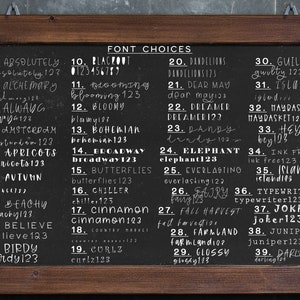 FONT CHOICES
ABSOLUTELY
absolutely123
ALCHEMY
alchemy123
ALWAYS
always123
AMSTERDAM
amsterdam123
APRICOTS
apricots123
AUTUMN
autumn123
BEACHY
beachy123
BELIEVE
believe123
BIRDY
birdy123
10. BLACKOUT
11. blooming
blooming123
12. BLOOMY
bloomy123
13. BOHEMIAN
bohemian123
14. BROADWAY
broadway123
15. BUTTERFLIES
butterflies123
16. CHILLER
chiller123
17. CINNAMON
cinnamon123
18. COUNTRY MARKET
19. CURLY
curly123
20. DANDELIONS
DANDELIONS123
21. DEAR MAY
dear may123
22. DREAMER
DREAMER123
23. DANDY
24. ELEPHANT
elephant123
25. EVERLASTING
everlasting123
26. FAIRY
fairy123
27. FALL HARVEST
fall harvest123
28. FARMLAND
farmland123
29. GLOSSY
glossy123
30. GUILTY
guilty123
31. ISLE
32. MAYBASKET
MAYBASKET123
33. HEY
34. INK
ink free123
35. ISLAND
island123
36. TYPEWRITER
typewriter123
37. JOKER
joker123
38. JUNIPER
juniper123
39. DARLING
darling123